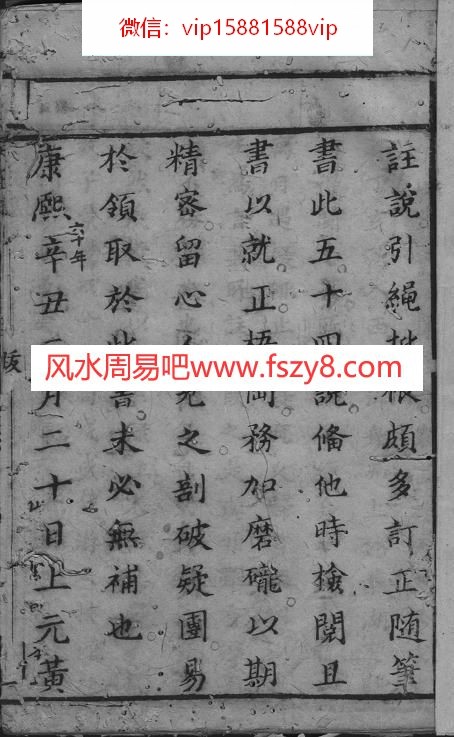 微信：vip15881588vip
註說引繩批根頗多訂正随筆
書此五十四說俻他時撿閱且
書以就正梧岡務加磨礲以期
精密留心之剖破疑團易
於領取於此書未必無補也
康熙辛丑六十年月二十日上元黃
跋
风水周易吧www.fszy8.com